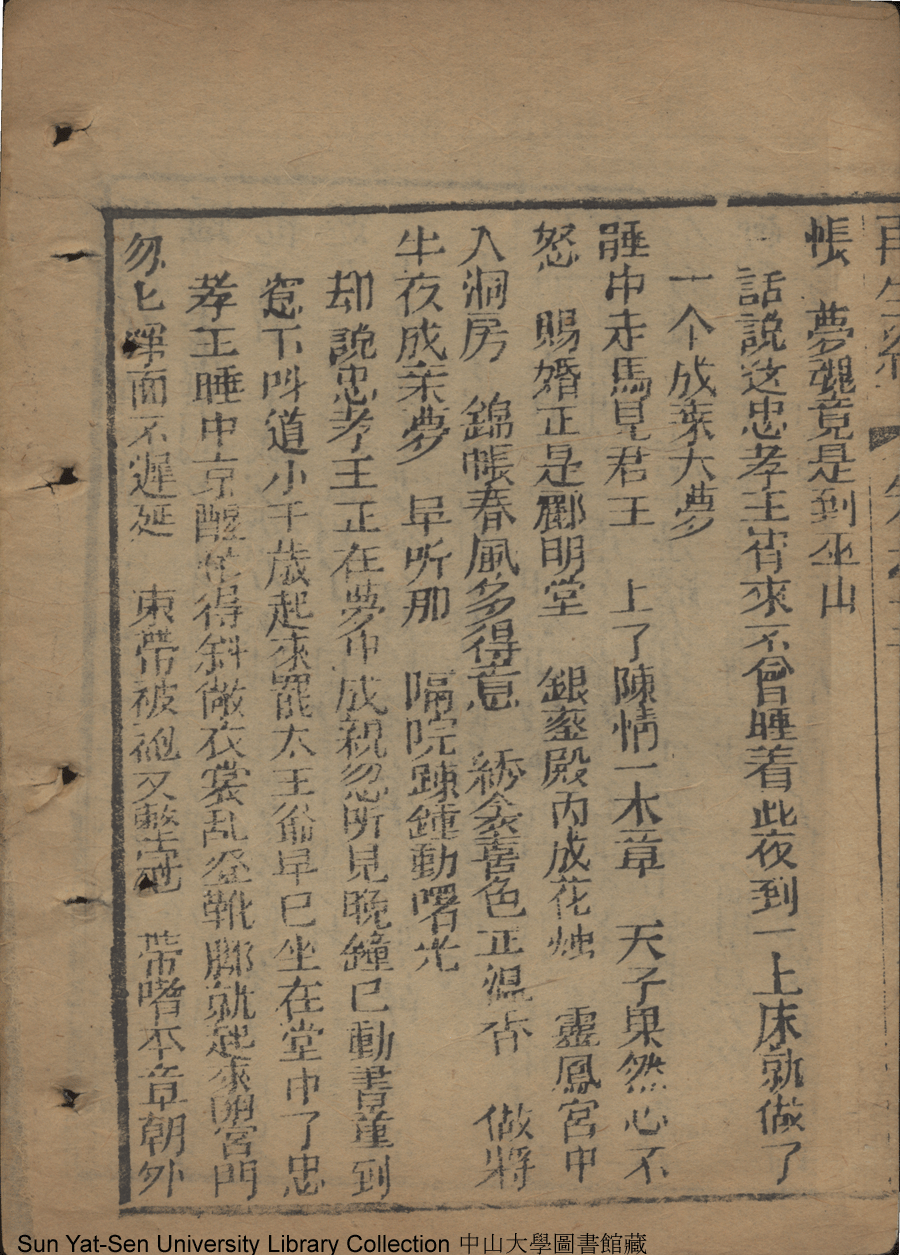 再生緣
帳　夢魂竟是到巫山
話說這忠孝王宵來不曾睡着此夜到一上床就做了
一个成亲大夢
睡中走馬見君王　上了陳情一本章　天子果然心不
怒　賜婚正是酈明堂　銀鑾殿內成花烛　靈鳳宮中
入洞房　錦帳春風多得意　綉衾喜色正温香　做將
半夜成亲夢　早听那　隔院踈鍾動曙光
却說忠孝王正在夢中成親忽听見晚鐘已動書童到
窓下叫道小千歲起來罷太王爺早已坐在堂中了忠
孝王睡中京醒忙得斜做衣裳乱登靴脚就起來開宮門
匆匕揮面不遲延　束帶被袍又整冠　帶啫本章朝外
Sun Yat-Sen University Library Collection 中山大學圖書館藏